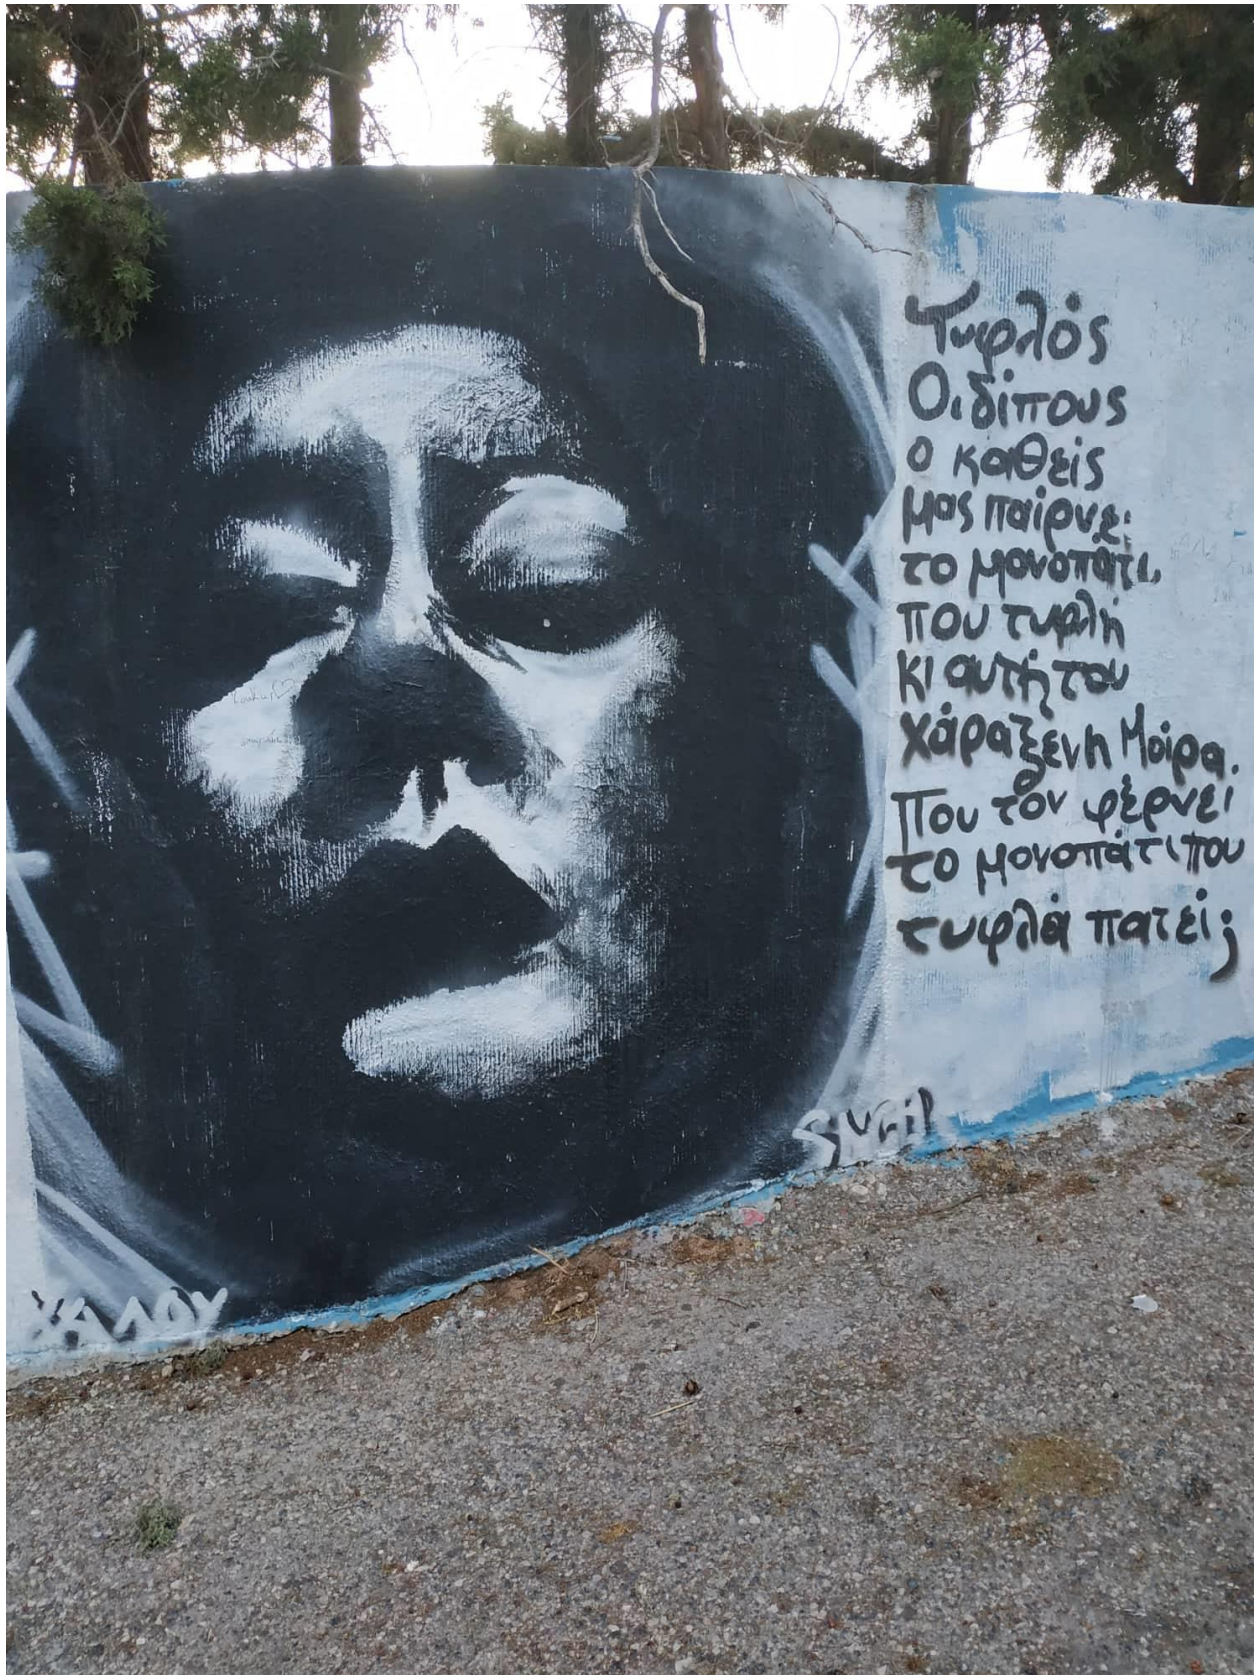 Τυφλός
Οιδίπους
ο καθείς
μας παίρνει
το μονοπάτι,
που τυφλή
κι αυτή του
χάραξεν η Μοίρα.
Που τον φέρνει
το μονοπάτι που
τυφλά πατεί;
ΧΑΛΟΥ